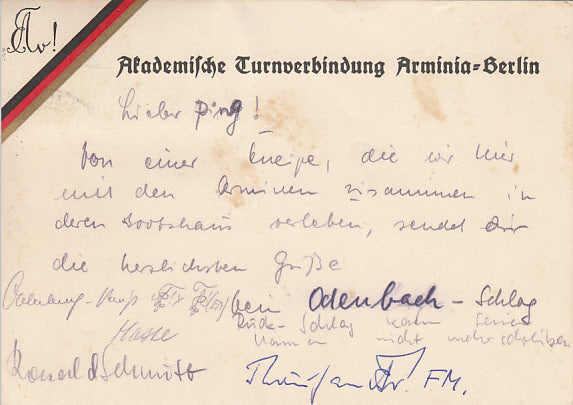 Av!
Akademische Turnverbindung Arminia-Berlin
Lieber Ping!
Von einer Kneipe, die wir hier
mit den Arminen zusammen in
deren Bootshaus verleben, sendet dir
die herzlichsten Grüße
dein Odenbach - Schlag
Schlag kann seinen
Namen nicht mehr schreiben
Hasse
Ronald Schmitt
FM.